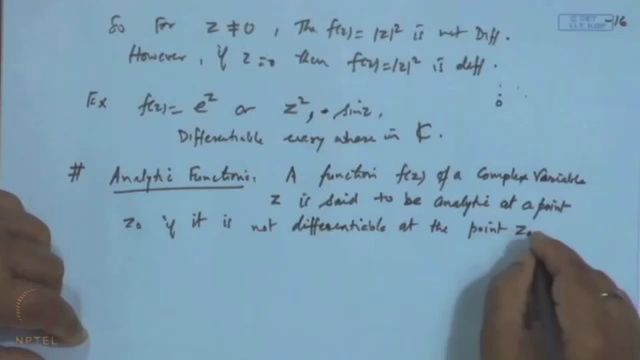 So For z ≠ 0, The f(z) = |z|² is not Diff.
However, if z = 0 then f(z) = |z|² is diff.
Ex f(z) = e^z or z², sin z,
Differentiable every where in ℂ.
# Analytic Function: A function f(z) of a Complex Variable
z is said to be analytic at a point
z₀ if it is not differentiable at the point z₀
NPTEL